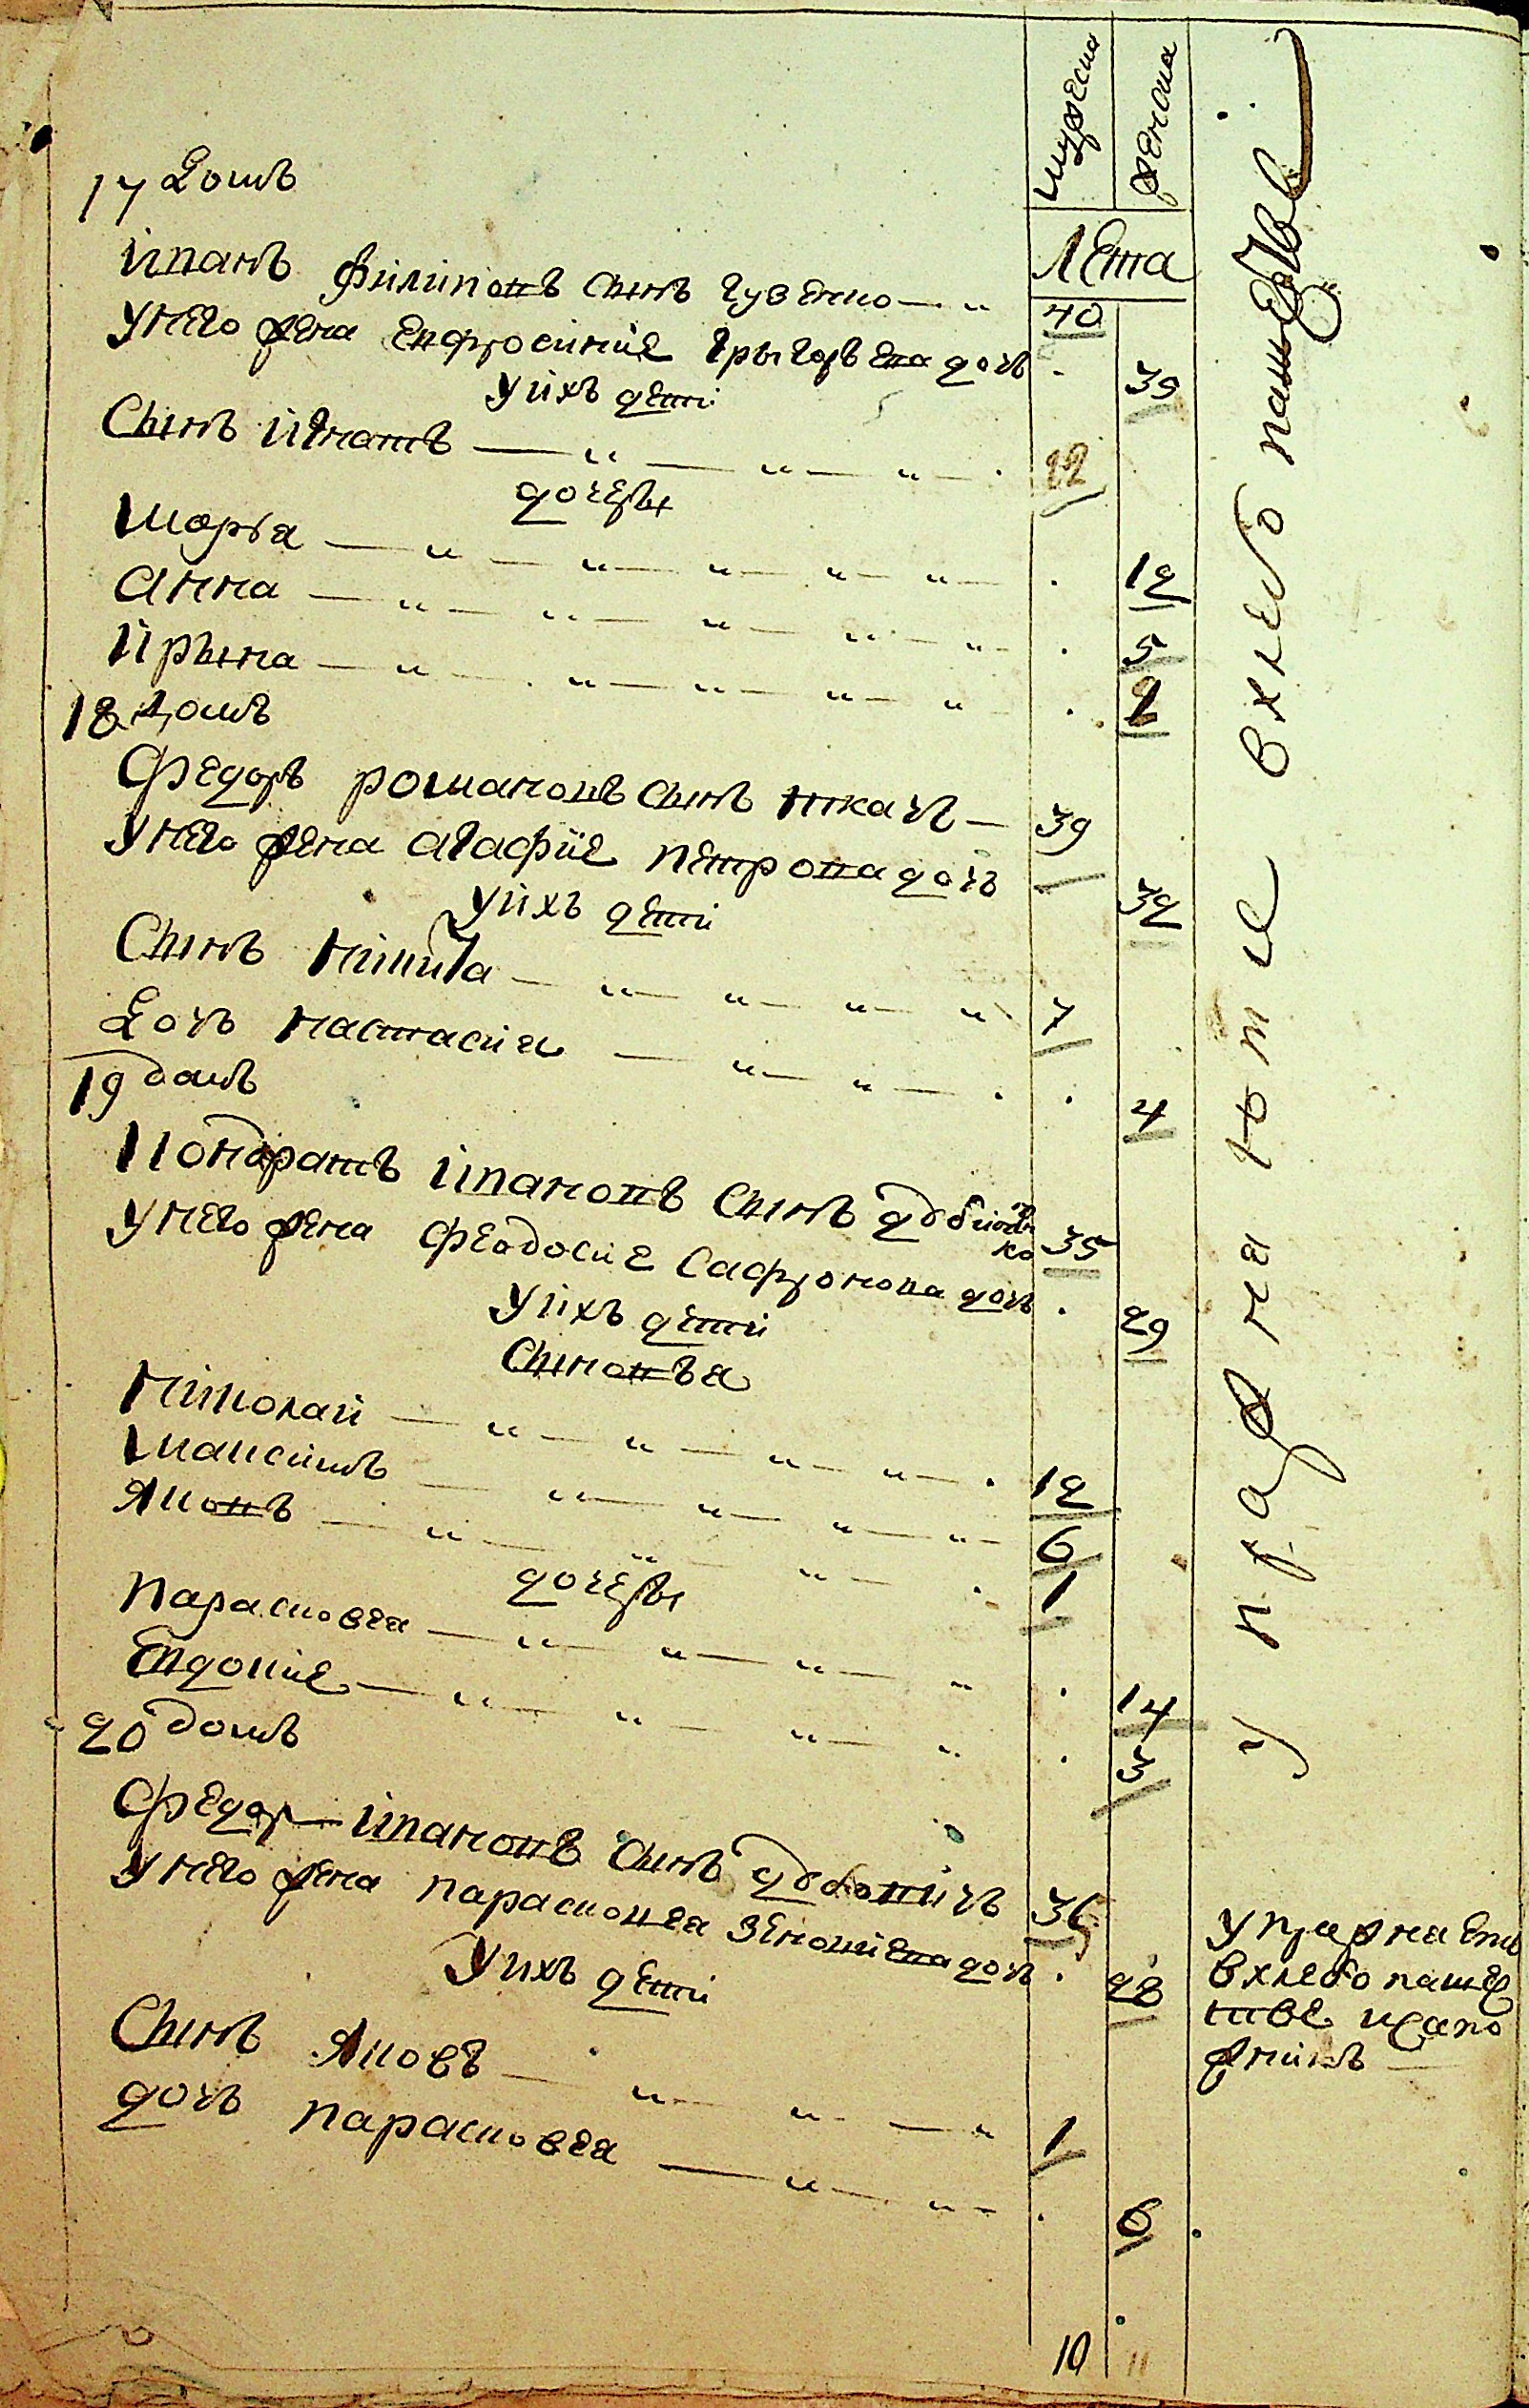 мужеска
женска
Лета
17 Домъ
Иванъ филиповъ сынъ гузенко 40
У него жена евфросиние грыгоръева дочъ 39
У ихъ дети
Сынъ игнатъ 12
дочеры
Маръя 12
Анна 5
Ирына 1
18 Домъ
Федоръ романовъ сынъ ткачъ 39
У него жена агафие петрова дочъ 32
У ихъ дети
Сынъ никита 7
Дочъ настасия 4
19 домъ
Кондратъ ивановъ сынъ 35
У него жена феодосие сафронова дочъ 29
У ихъ дети
Сыновъя
николай 12
максимъ 6
яковъ 1
дочеры
парасковея 14
Евдокие 3
20 домъ
Федор ивановъ сынъ 36
У него жена парасковея зеновиева дочъ 28
У ихъ дети
Сынъ яковъ 1
дочъ парасковея 6
10 11
упражнаютце в хлебопашестве
упражнаетц
вхлебопаше
стве